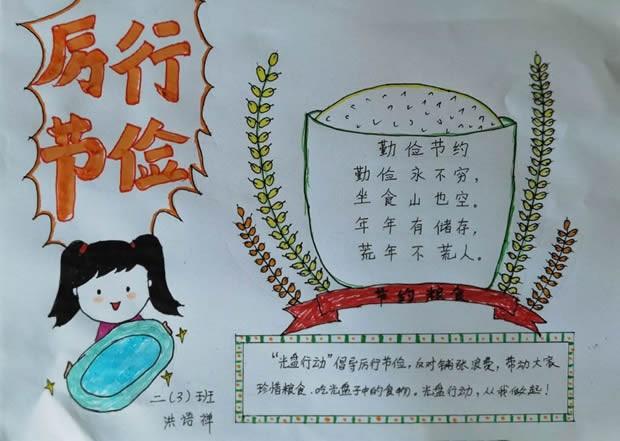 厉行
节俭
勤俭节约
勤俭永不穷，
坐食山也空。
年年有储存，
荒年不荒人。
节约粮食
"光盘行动"倡导厉行节俭，反对铺张浪费，带动大家
珍惜粮食、吃光盘子中的食物。光盘行动，从我做起！
二(3)班
洪语禅